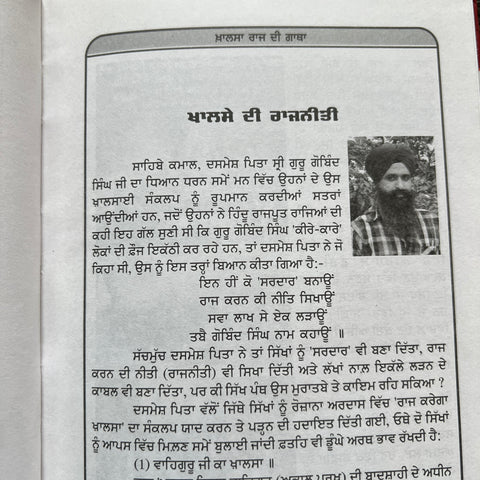 ਖ਼ਾਲਸਾ ਰਾਜ ਦੀ ਗਾਥਾ
ਖਾਲਸੇ ਦੀ ਰਾਜਨੀਤੀ
ਸਾਹਿਬੇ ਕਮਾਲ, ਦਸਮੇਸ਼ ਪਿਤਾ ਸ੍ਰੀ ਗੁਰੂ ਗੋਬਿੰਦ
ਸਿੰਘ ਜੀ ਦਾ ਧਿਆਨ ਧਰਨ ਸਮੇਂ ਮਨ ਵਿੱਚ ਉਹਨਾਂ ਦੇ ਉਸ
ਖ਼ਾਲਸਾਈ ਸੰਕਲਪ ਨੂੰ ਰੂਪਮਾਨ ਕਰਦੀਆਂ ਸਤਰਾਂ
ਆਉਂਦੀਆਂ ਹਨ, ਜਦੋਂ ਉਹਨਾਂ ਨੇ ਹਿੰਦੂ ਰਾਜਪੂਤ ਰਾਜਿਆਂ ਦੀ
ਕਹੀ ਇਹ ਗੱਲ ਸੁਣੀ ਸੀ ਕਿ ਗੁਰੂ ਗੋਬਿੰਦ ਸਿੰਘ 'ਕੀਰੇ-ਕਾਰੇ'
ਲੋਕਾਂ ਦੀ ਫ਼ੌਜ ਇਕੱਠੀ ਕਰ ਰਹੇ ਹਨ, ਤਾਂ ਦਸਮੇਸ਼ ਪਿਤਾ ਨੇ ਜੋ
ਕਿਹਾ ਸੀ, ਉਸ ਨੂੰ ਇਸ ਤਰ੍ਹਾਂ ਬਿਆਨ ਕੀਤਾ ਗਿਆ ਹੈ:-
ਇਨ ਹੀਂ ਕੋ 'ਸਰਦਾਰ' ਬਨਾਊਂ
ਰਾਜ ਕਰਨ ਕੀ ਨੀਤਿ ਸਿਖਾਊਂ
ਸਵਾ ਲਾਖ ਸੇ ਏਕ ਲੜਾਊਂ
ਤਬੈ ਗੋਬਿੰਦ ਸਿੰਘ ਨਾਮ ਕਹਾਊਂ ॥
ਸੱਚਮੁੱਚ ਦਸਮੇਸ਼ ਪਿਤਾ ਨੇ ਤਾਂ ਸਿੱਖਾਂ ਨੂੰ 'ਸਰਦਾਰ' ਵੀ ਬਣਾ ਦਿੱਤਾ, ਰਾਜ
ਕਰਨ ਦੀ ਨੀਤੀ (ਰਾਜਨੀਤੀ) ਵੀ ਸਿਖਾ ਦਿੱਤੀ ਅਤੇ ਲੱਖਾਂ ਨਾਲ ਇਕੱਲੇ ਲੜਨ ਦੇ
ਕਾਬਲ ਵੀ ਬਣਾ ਦਿੱਤਾ, ਪਰ ਕੀ ਸਿੱਖ ਪੰਥ ਉਸ ਮੁਰਾਤਬੇ ਤੇ ਕਾਇਮ ਰਹਿ ਸਕਿਆ ?
ਦਸਮੇਸ਼ ਪਿਤਾ ਵੱਲੋਂ ਜਿੱਥੇ ਸਿੱਖਾਂ ਨੂੰ ਰੋਜ਼ਾਨਾ ਅਰਦਾਸ ਵਿੱਚ 'ਰਾਜ ਕਰੇਗਾ
ਖ਼ਾਲਸਾ' ਦਾ ਸੰਕਲਪ ਯਾਦ ਕਰਨ ਤੇ ਪੜ੍ਹਨ ਦੀ ਹਦਾਇਤ ਦਿੱਤੀ ਗਈ, ਓਥੇ ਦੋ ਸਿੱਖਾਂ
ਨੂੰ ਆਪਸ ਵਿੱਚ ਮਿਲਣ ਸਮੇਂ ਬੁਲਾਈ ਜਾਂਦੀ ਫ਼ਤਹਿ ਵੀ ਡੂੰਘੇ ਅਰਥ ਭਾਵ ਰੱਖਦੀ ਹੈ:
(1) ਵਾਹਿਗੁਰੂ ਜੀ ਕਾ ਖ਼ਾਲਸਾ ॥
(ਅਕਾਲ ਪੁਰਖ) ਦੀ ਬਾਦਸ਼ਾਹੀ ਦੇ ਅਧੀਨ